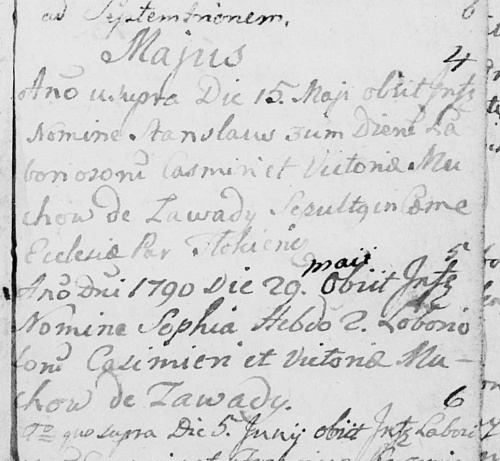 ad Septemtrionem. 6
Majus
4
Año ut supra Die 15. Maji obiit Jnfz
Nomine Stanslaus 3um Dierū La
boriosorū Casmiri et Victoriæ Mu
chow de Zawady Sepultq in Cæme
Ecclesiæ Par
maii 5
Año Dñi 1790 Die 29. Obiit Jnfz
Nomine Sophia Hebdo 2. Laborio
sorū Casimieri et Victoriæ Mu-
chow de Zawady. 6
Aº quo supra Die 5. Junij obiit Jnfz Labori